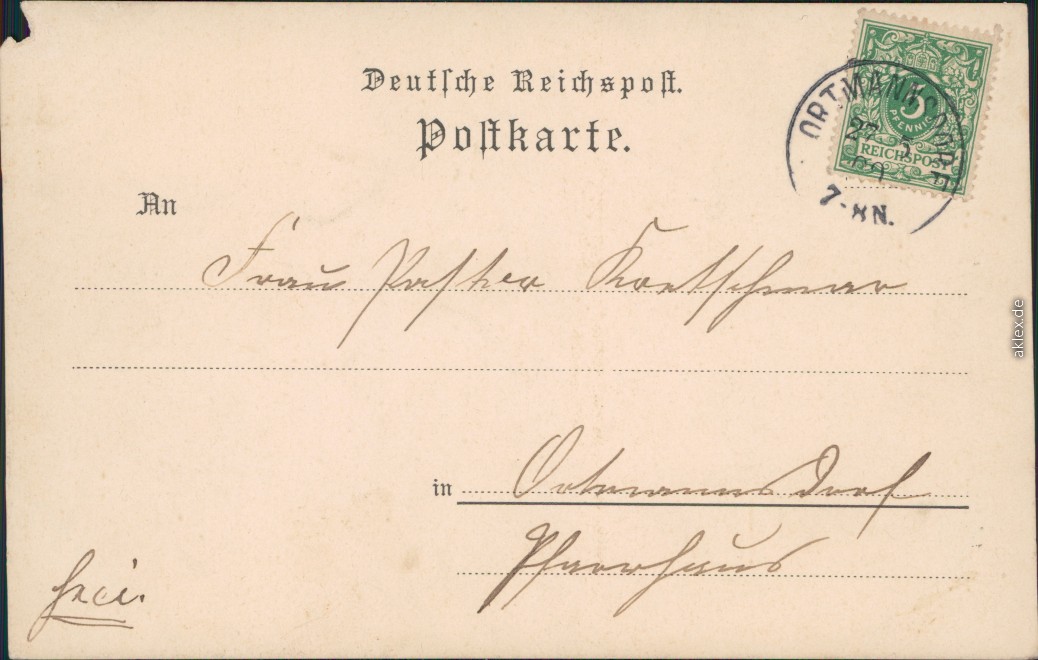 Deutsche Reichspost.
Postkarte.
5
PFENNIG
REICHSPOST
ORTMANNSDORF
27 5
7-8N.
An
Frau Pastor Kretschmar
in Ortmannsdorf
Pfarrhaus
frei.
aklex.de